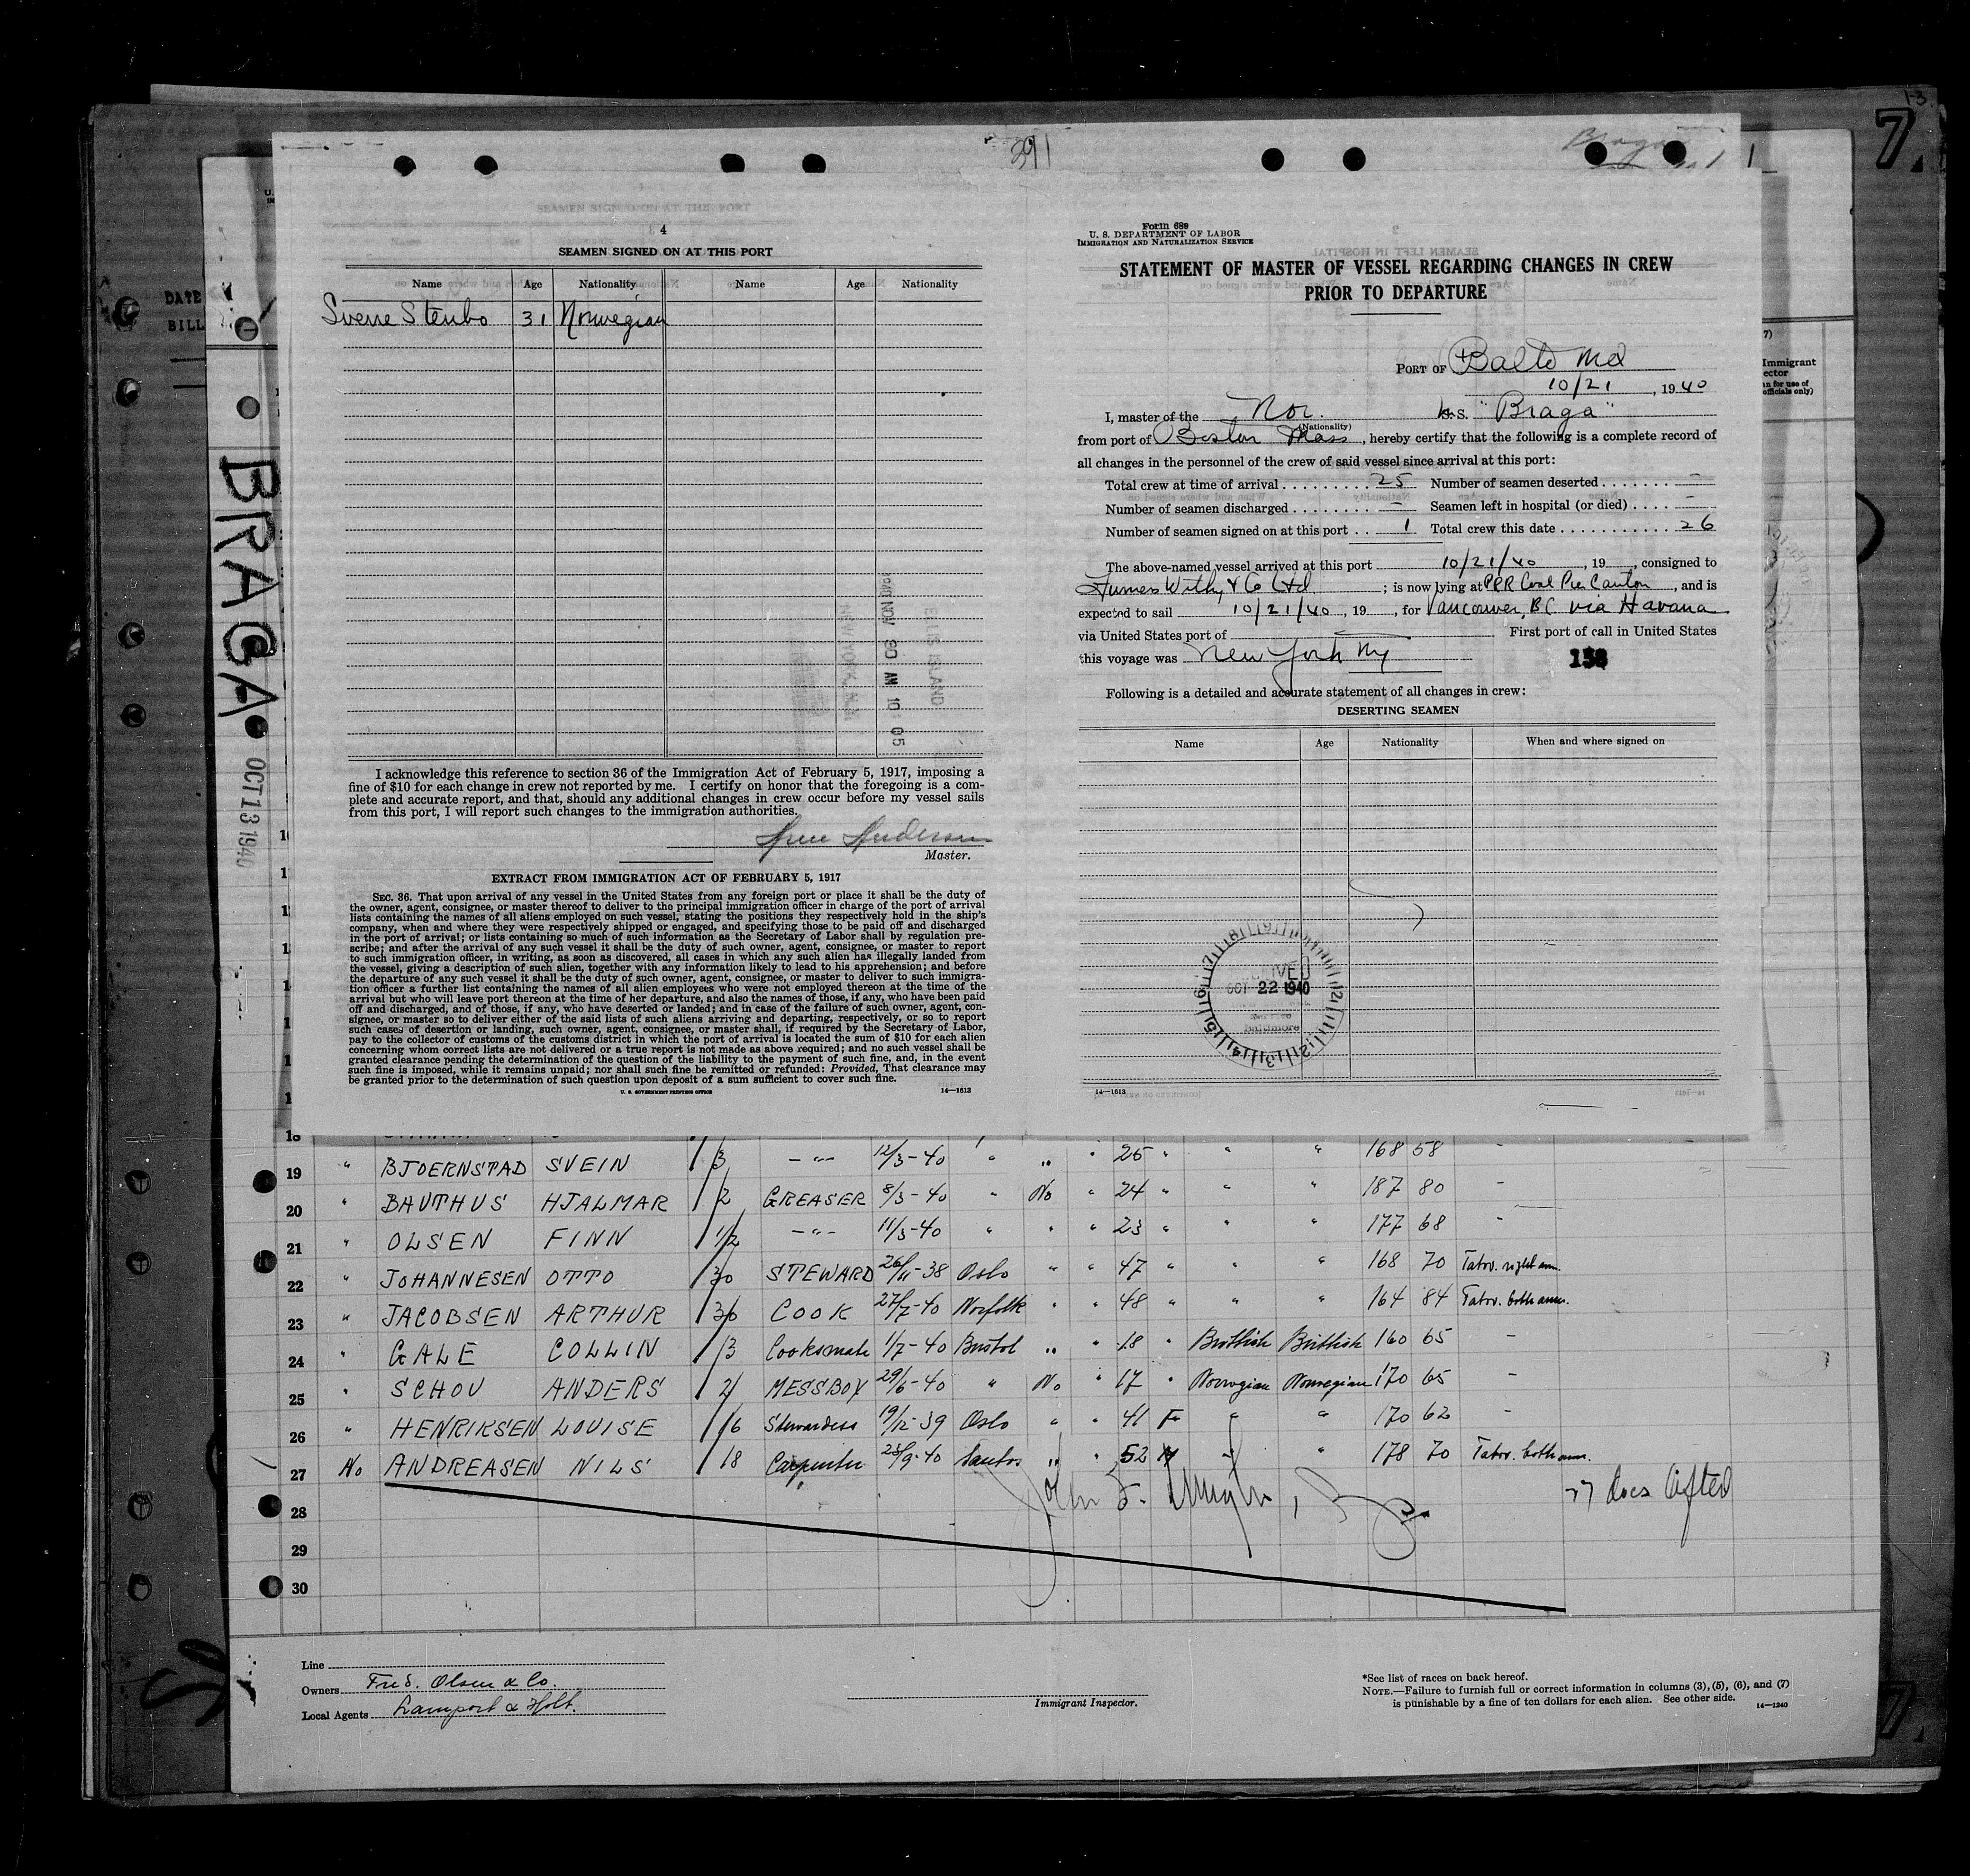 13
7.
DATE
BILL
BRAGA
OCT 13 1940
391
Braga
4
SEAMEN SIGNED ON AT THIS PORT
Name Age Nationality Name Age Nationality
Sverre Stenbo 31 Norwegian
ELLIS ISLAND
1940 NOV 30 AM 10:05
NEW YORK, N.Y.
I acknowledge this reference to section 36 of the Immigration Act of February 5, 1917, imposing a
fine of $10 for each change in crew not reported by me. I certify on honor that the foregoing is a com-
plete and accurate report, and that, should any additional changes in crew occur before my vessel sails
from this port, I will report such changes to the immigration authorities.
Master.
EXTRACT FROM IMMIGRATION ACT OF FEBRUARY 5, 1917
SEC. 36. That upon arrival of any vessel in the United States from any foreign port or place it shall be the duty of
the owner, agent, consignee, or master thereof to deliver to the principal immigration officer in charge of the port of arrival
lists containing the names of all aliens employed on such vessel, stating the positions they respectively hold in the ship's
company, when and where they were respectively shipped or engaged, and specifying those to be paid off and discharged
in the port of arrival; or lists containing so much of such information as the Secretary of Labor shall by regulation pre-
scribe; and after the arrival of any such vessel it shall be the duty of such owner, agent, consignee, or master to report
to such immigration officer, in writing, as soon as discovered, all cases in which any such alien has illegally landed from
the vessel, giving a description of such alien, together with any information likely to lead to his apprehension; and before
the departure of any such vessel it shall be the duty of such owner, agent, consignee, or master to deliver to such immigra-
tion officer a further list containing the names of all alien employees who were not employed thereon at the time of the
arrival but who will leave port thereon at the time of her departure, and also the names of those, if any, who have been paid
off and discharged, and of those, if any, who have deserted or landed; and in case of the failure of such owner, agent, con-
signee, or master so to deliver either of the said lists of such aliens arriving and departing, respectively, or so to report
such cases of desertion or landing, such owner, agent, consignee, or master shall, if required by the Secretary of Labor,
pay to the collector of customs of the customs district in which the port of arrival is located the sum of $10 for each alien
concerning whom correct lists are not delivered or a true report is not made as above required; and no such vessel shall be
granted clearance pending the determination of the question of the liability to the payment of such fine, and, in the event
such fine is imposed, while it remains unpaid; nor shall such fine be remitted or refunded: Provided, That clearance may
be granted prior to the determination of such question upon deposit of a sum sufficient to cover such fine.
U. S. GOVERNMENT PRINTING OFFICE 14—1613
Form 689
U. S. DEPARTMENT OF LABOR
IMMIGRATION AND NATURALIZATION SERVICE
STATEMENT OF MASTER OF VESSEL REGARDING CHANGES IN CREW
PRIOR TO DEPARTURE
PORT OF Balto Md
10/21, 1940
I, master of the Nor. S.S. "Braga"
(Nationality)
from port of Boston Mass, hereby certify that the following is a complete record of
all changes in the personnel of the crew of said vessel since arrival at this port:
Total crew at time of arrival 25 Number of seamen deserted –
Number of seamen discharged – Seamen left in hospital (or died) –
Number of seamen signed on at this port 1 Total crew this date 26
The above-named vessel arrived at this port 10/21/40, 19, consigned to
Furness Withy & Co Ltd; is now lying at PRR Coal Pier Canton, and is
expected to sail 10/21/40, 19, for Vancouver, BC via Havana
via United States port of First port of call in United States
this voyage was New York Ny
158
Following is a detailed and accurate statement of all changes in crew:
DESERTING SEAMEN
Name Age Nationality When and where signed on
OCT 22 1940
Baltimore
14—1613
7)
Immigrant
18
19 " BJOERNSTAD SVEIN 3 -"- 12/3-40 " " " 25 " " " 168 58 -
20 " BAUTHUS HJALMAR 2 GREASER 8/3-40 " No " 24 " " " 187 80 -
21 " OLSEN FINN 1/2 -"- 11/3-40 " " " 23 " " " 177 68 -
22 " JOHANNESEN OTTO 30 STEWARD 26/11-38 Oslo " " 47 " " " 168 70 Tatov. right arm.
23 " JACOBSEN ARTHUR 30 COOK 27/7-40 Norfolk " " 48 " " " 164 84 Tatov. both arms.
24 " GALE COLLIN 3 Cooksmate 1/7-40 Bristol " " 18 " Brittish Brittish 160 65 -
25 " SCHOU ANDERS 2 MESSBOY 29/6-40 " No " 17 " Norwegian Norwegian 170 65 -
26 " HENRIKSEN LOUISE 16 Stewardess 19/12-39 Oslo " " 41 F " " 170 62 -
27 No ANDREASEN NILS 18 Carpenter 25/9-40 Santos " " 52 M " " 178 70 Tatov. both arms.
28
29
30
Line
Owners Fred. Olsen & Co.
Local Agents Lamport & Holt.
Immigrant Inspector.
*See list of races on back hereof.
NOTE.—Failure to furnish full or correct information in columns (3), (5), (6), and (7)
is punishable by a fine of ten dollars for each alien. See other side. 14—1240
7.